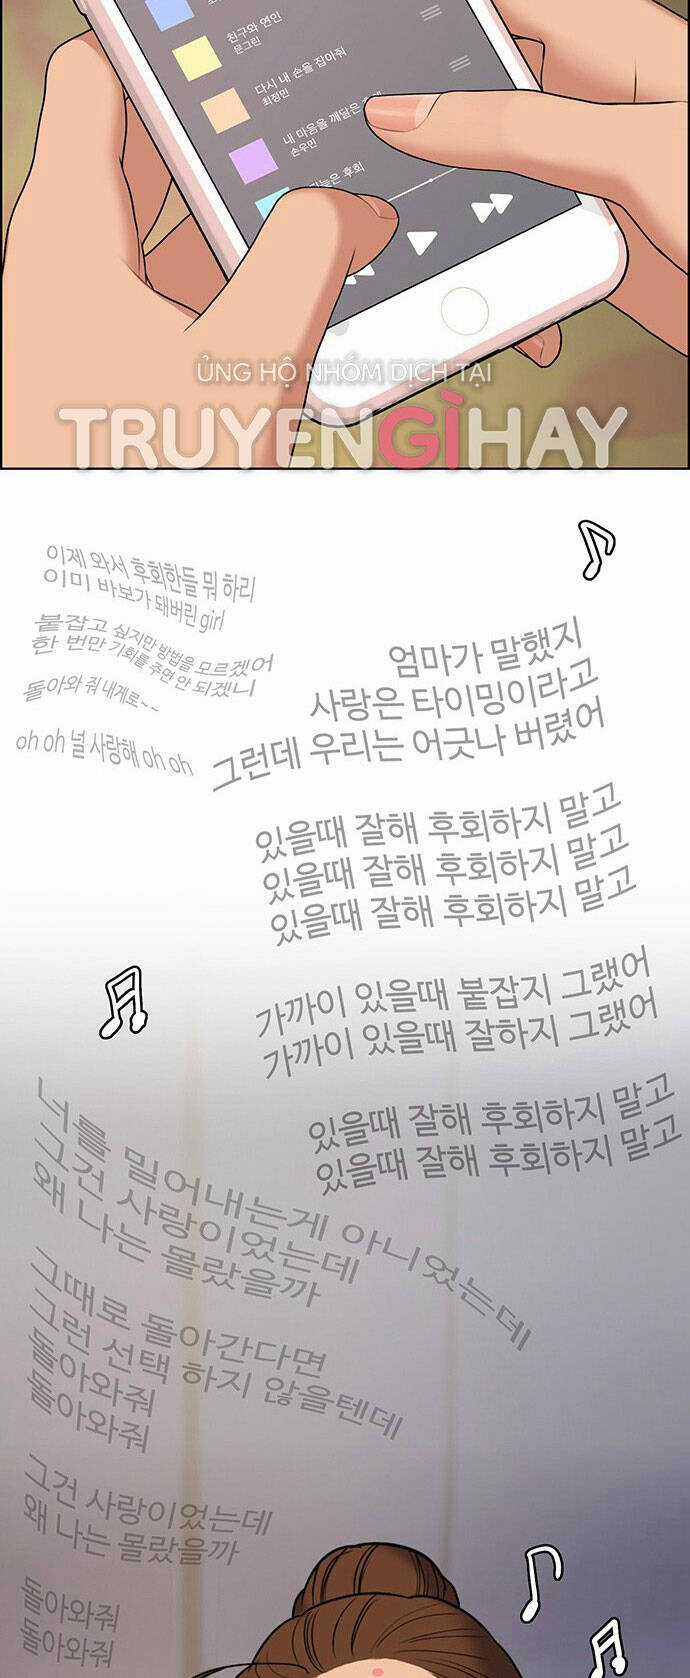 친구와 연인
문그린
다시 내 손을 잡아줘
최정민
내 마음을 깨달은
손우민
후회
ỦNG HỘ NHÓM DỊCH TẠI
TRUYENGIHAY
이제 와서 후회한들 뭐 하리
이미 바보가 돼버린 girl
붙잡고 싶지만 방법을 모르겠어
한 번만 기회를 주면 안 되겠니
돌아와 줘 내게로~~
oh oh 널 사랑해 oh oh
엄마가 말했지
사랑은 타이밍이라고
그런데 우리는 어긋나 버렸어
있을때 잘해 후회하지 말고
있을때 잘해 후회하지 말고
있을때 잘해 후회하지 말고
가까이 있을때 붙잡지 그랬어
가까이 있을때 잘하지 그랬어
있을때 잘해 후회하지 말고
있을때 잘해 후회하지 말고
너를 밀어내는게 아니었는데
그건 사랑이었는데
왜 나는 몰랐을까
그때로 돌아간다면
그런 선택 하지 않을텐데
돌아와줘
돌아와줘
그건 사랑이었는데
왜 나는 몰랐을까
돌아와줘
돌아와줘